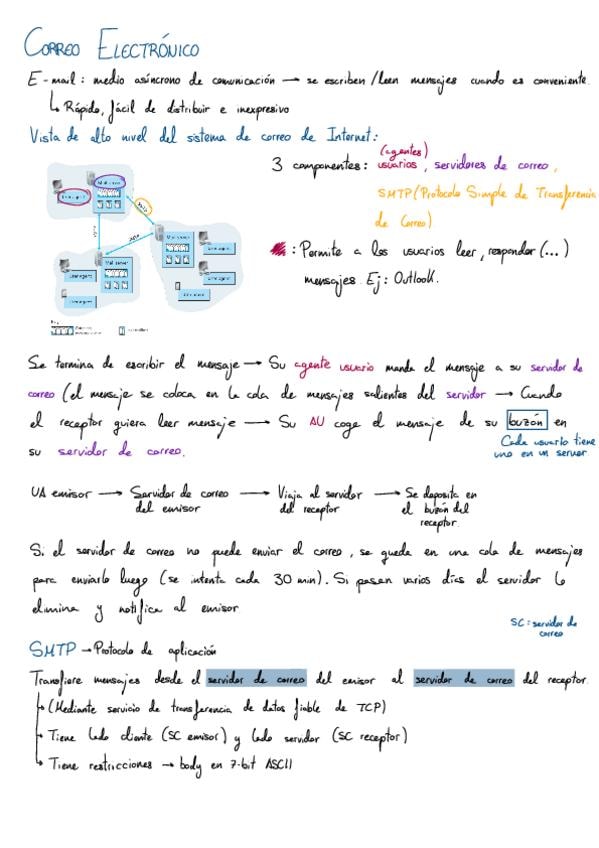 CORREO ELECTRÓNICO
E-mail: medio asíncrono de comunicación → se escriben/leen mensajes cuando es conveniente.
↳ Rápido, fácil de distribuir e inexpresivo
Vista de alto nivel del sistema de correo de Internet:
(agentes)
3 componentes: usuarios, servidores de correo,
SMTP (Protocolo Simple de Transferencia
de Correo)
: Permite a los usuarios leer, responder (...)
mensajes. Ej: Outlook.
Mail server
User agent
SMTP
Mail server
SMTP
SMTP
User agent
Mail server
User agent
User agent
User agent
User agent
Se termina de escribir el mensaje → Su agente usuario manda el mensaje a su servidor de
correo (el mensaje se coloca en la cola de mensajes salientes del servidor → Cuando
el receptor quiera leer mensaje → Su AU coge el mensaje de su buzón en
Cada usuario tiene
uno en un server
su servidor de correo.
UA emisor → Servidor de correo → Viaja al servidor → Se deposita en
del emisor del receptor el buzón del
receptor.
Si el servidor de correo no puede enviar el correo, se queda en una cola de mensajes
para enviarlo luego (se intenta cada 30 min). Si pasan varios días el servidor lo
elimina y notifica al emisor
SC: servidor de
correo
SMTP → Protocolo de aplicación
Transfiere mensajes desde el servidor de correo del emisor al servidor de correo del receptor.
→ (Mediante servicio de transferencia de datos fiable de TCP)
→ Tiene lado cliente (SC emisor) y lado servidor (SC receptor)
→ Tiene restricciones → body en 7-bit ASCII